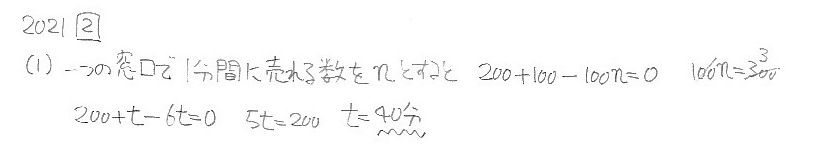 2021 2
(1) 一つの窓口で1分間に売れる数をnとすると 200+100-100n=0 100n=300 3
200+t-6t=0 5t=200 t=40分